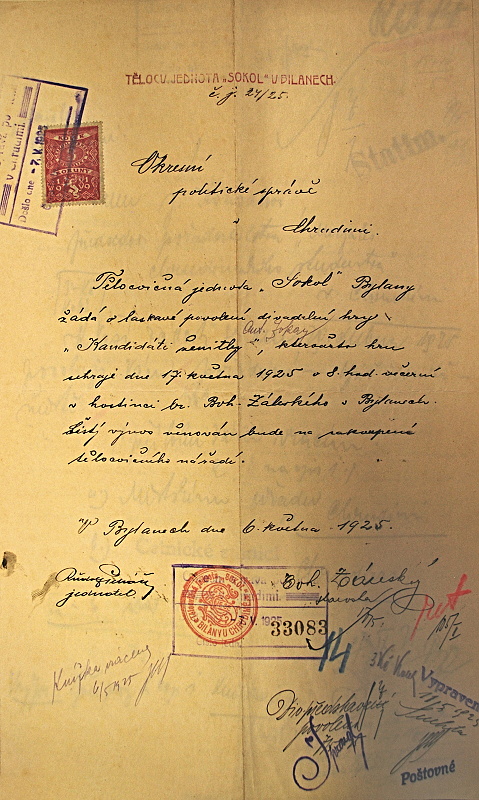 TĚLOCV. JEDNOTA „SOKOL" V BILANECH.
č. j. 24/25.
v Chrudimi.
Došlo dne -7. V. 1925
Okresní
politické správě
v
Chrudimi.
Tělocvičná jednota „Sokol" Bylany
žádá o laskavé povolení divadelní hry
Ant. Jokay
„Kandidáti ženitby", kteroužto hru
sehraje dne 17. května 1925 o 8. hod. večerní
v hostinci br. Boh. Záleského v Bylanech.
Čistý výnos věnován bude na zakoupení
tělocvičného nářadí.
V Bylanech dne 6. května 1925.
jednatel
Boh. Záleský
starosta
1925
33083
14
Knížka vrácena
Vypraveno
povolení
Poštovné